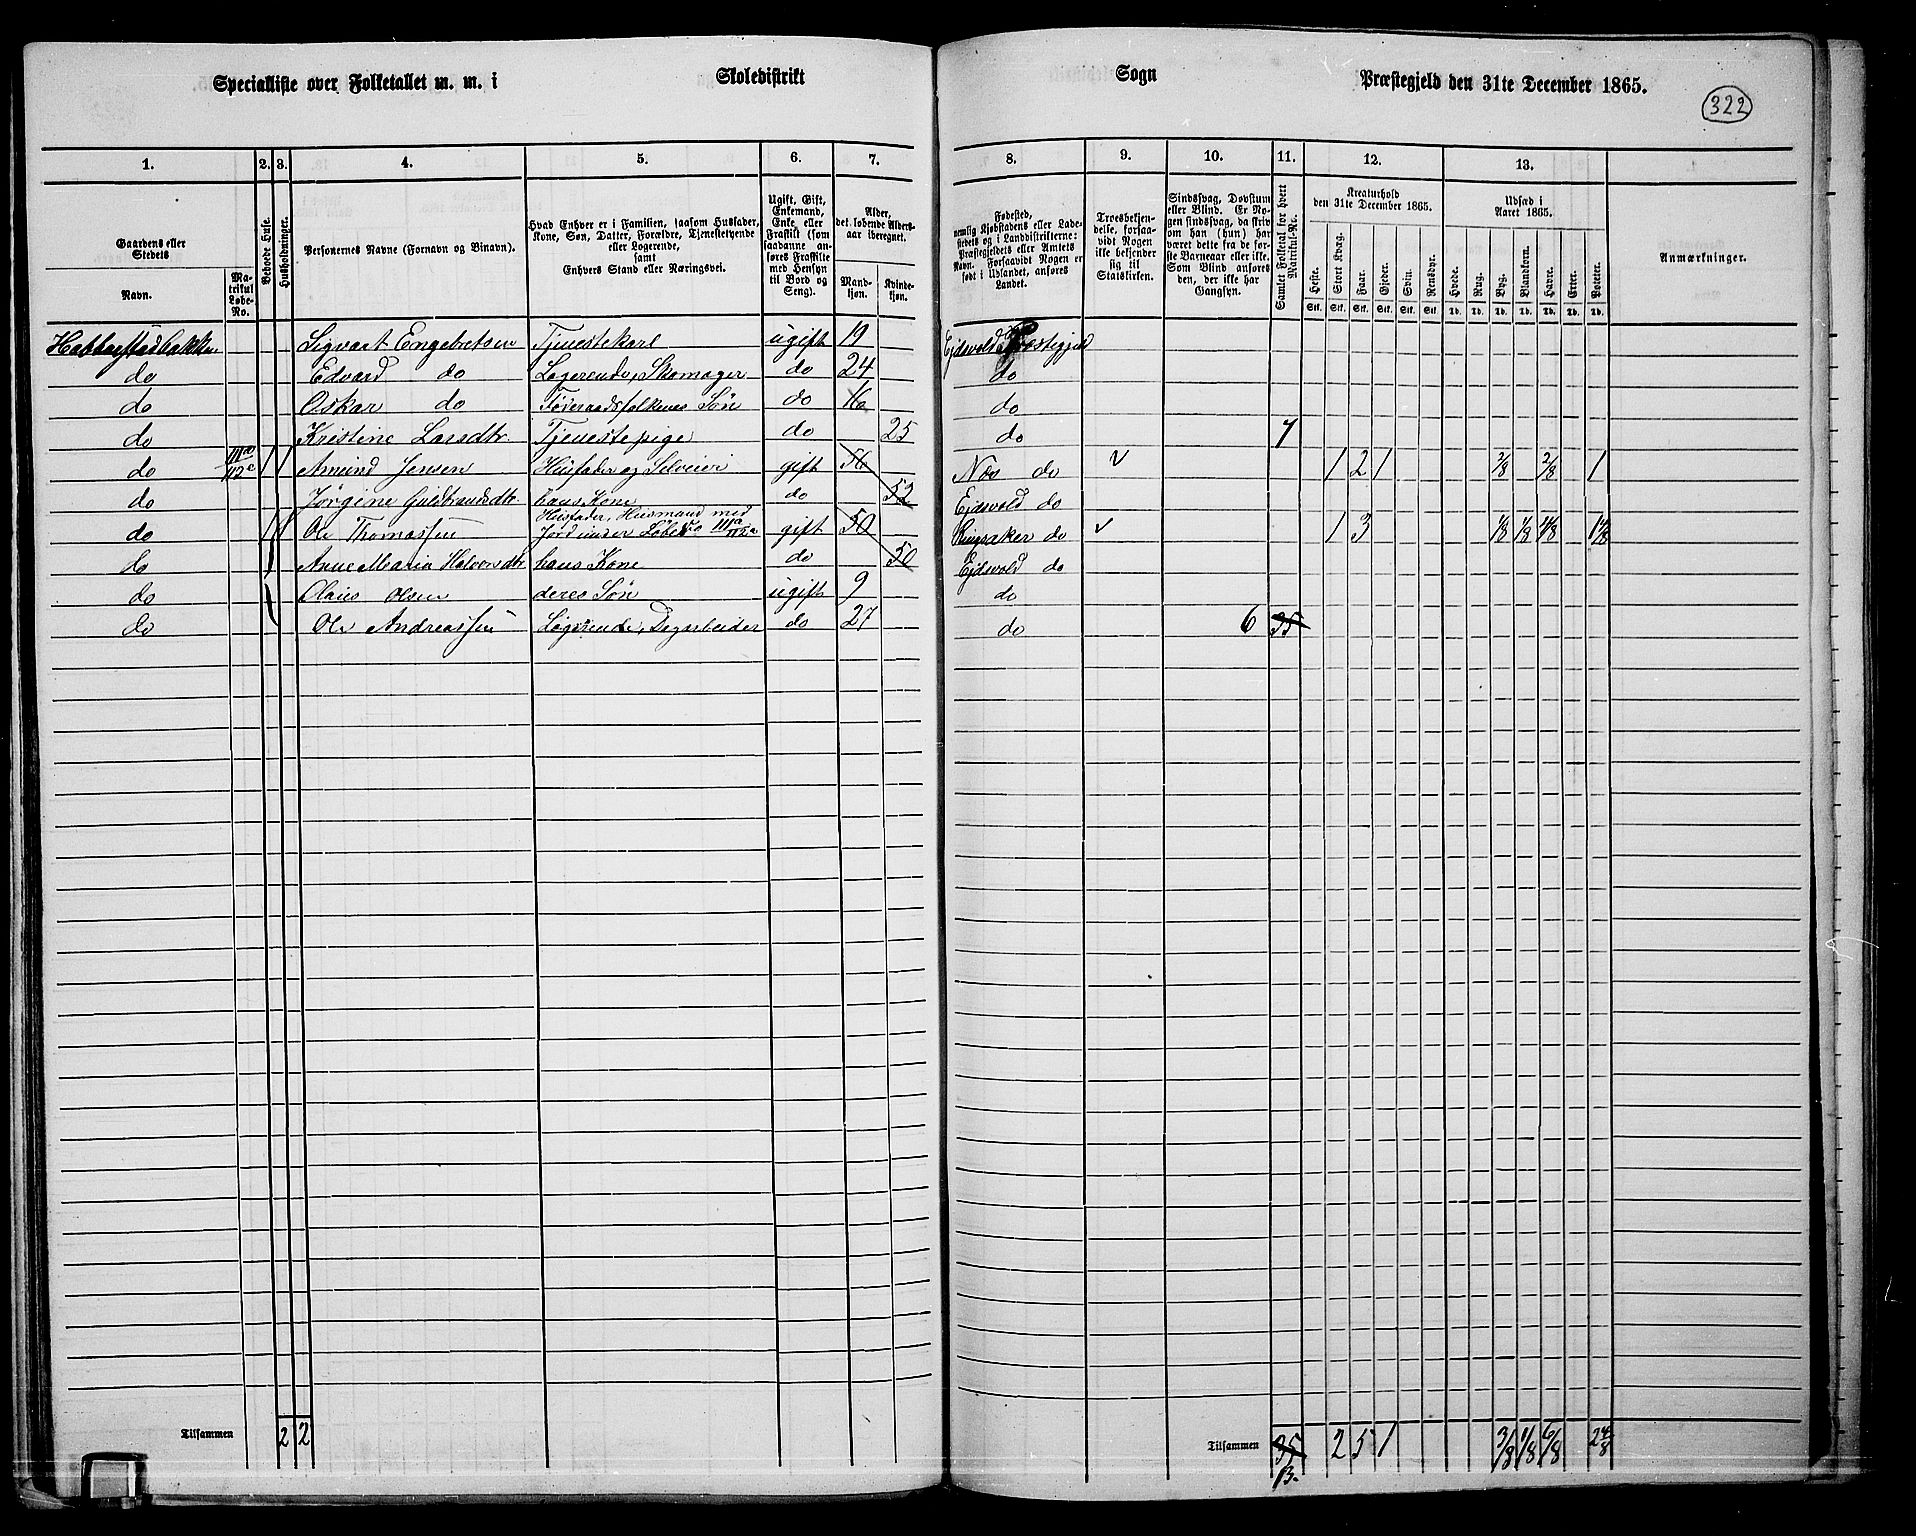 Specialliste over Folketallet m. m. i Skoledistrikt Sogn Præstegjeld den 31te December 1865.
322
1. 2. 3. 4. 5. 6. 7. 8. 9. 10. 11. 12. 13.
Gaardens eller Stedets
Navn.
Matrikul Løbe-No.
Beboede Huse.
Husholdninger.
Personernes Navne (Fornavn og Binavn).
Hvad Enhver er i Familien, saasom Husfader, Kone, Søn, Datter, Forældre, Tjenestetyende eller Logerende, samt Enhvers Stand eller Næringsvei.
Ugift, Gift, Enkemand, Enke eller Fraskilt (som saadanne anføres Fraskilte med Hensyn til Bord og Seng).
Alder, det løbende Aldersaar iberegnet.
Mandkjøn. Kvindekjøn.
Fødested, nemlig Kjøbstadens eller Ladestedets og i Landdistrikterne: Præstegjeldets eller Amtets Navn. Forsaavidt Nogen er født i Udlandet, anføres Landet.
Troesbekjendelse, forsaavidt Nogen ikke bekjender sig til Statskirken.
Sindssvag, Døvstum eller Blind. Er Nogen sindssvag, da skrives om han (hun) har været dette fra de første Barneaar eller ikke. Som Blind anføres den, der ikke har Gangsyn.
Samlet Folketal for hvert Matrikul-Nr.
Kreaturhold den 31te December 1865.
Heste. Stort Kvæg. Faar. Gjeder. Svin. Rensdyr.
Udsæd i Aaret 1865.
Hvede. Rug. Byg. Blandkorn. Havre. Erter. Poteter.
Anmærkninger.
Sigvart Engebretsen Tjenestekarl ugift 19 Ejdsvold Præstegjeld
do Edvard do Logerende, Skomager do 24 do
do Oskar do Føderaadsfolkenes Søn do 16 do
do Kristine Larsdtr. Tjenestepige do 25 do 7
do 111a 112c 1 1 Amund Jensen Husfader og Selveier gift 56 Næs do 1 2 1 2/8 2/8 1
do Jørgine Guldbrandsdtr. hans Kone do 52 Ejdsvold do
do 1 1 Ole Thomassen Husfader, Husmand med Jord under Løbe No 111a 112c gift 50 Ringsaker do 1 3 1/8 1/8 4/8 1 4/8
do Anne Maria Halvorsdtr hans Kone do 50 Ejdsvold do
do Olaus Olsen deres Søn ugift 9 do
do Ole Andreassen Logerende, Dagarbeider do 27 do 6 35
Tilsammen 2 2 Tilsammen 35 13. 2 5 1 3/8 1/8 6/8 2 4/8